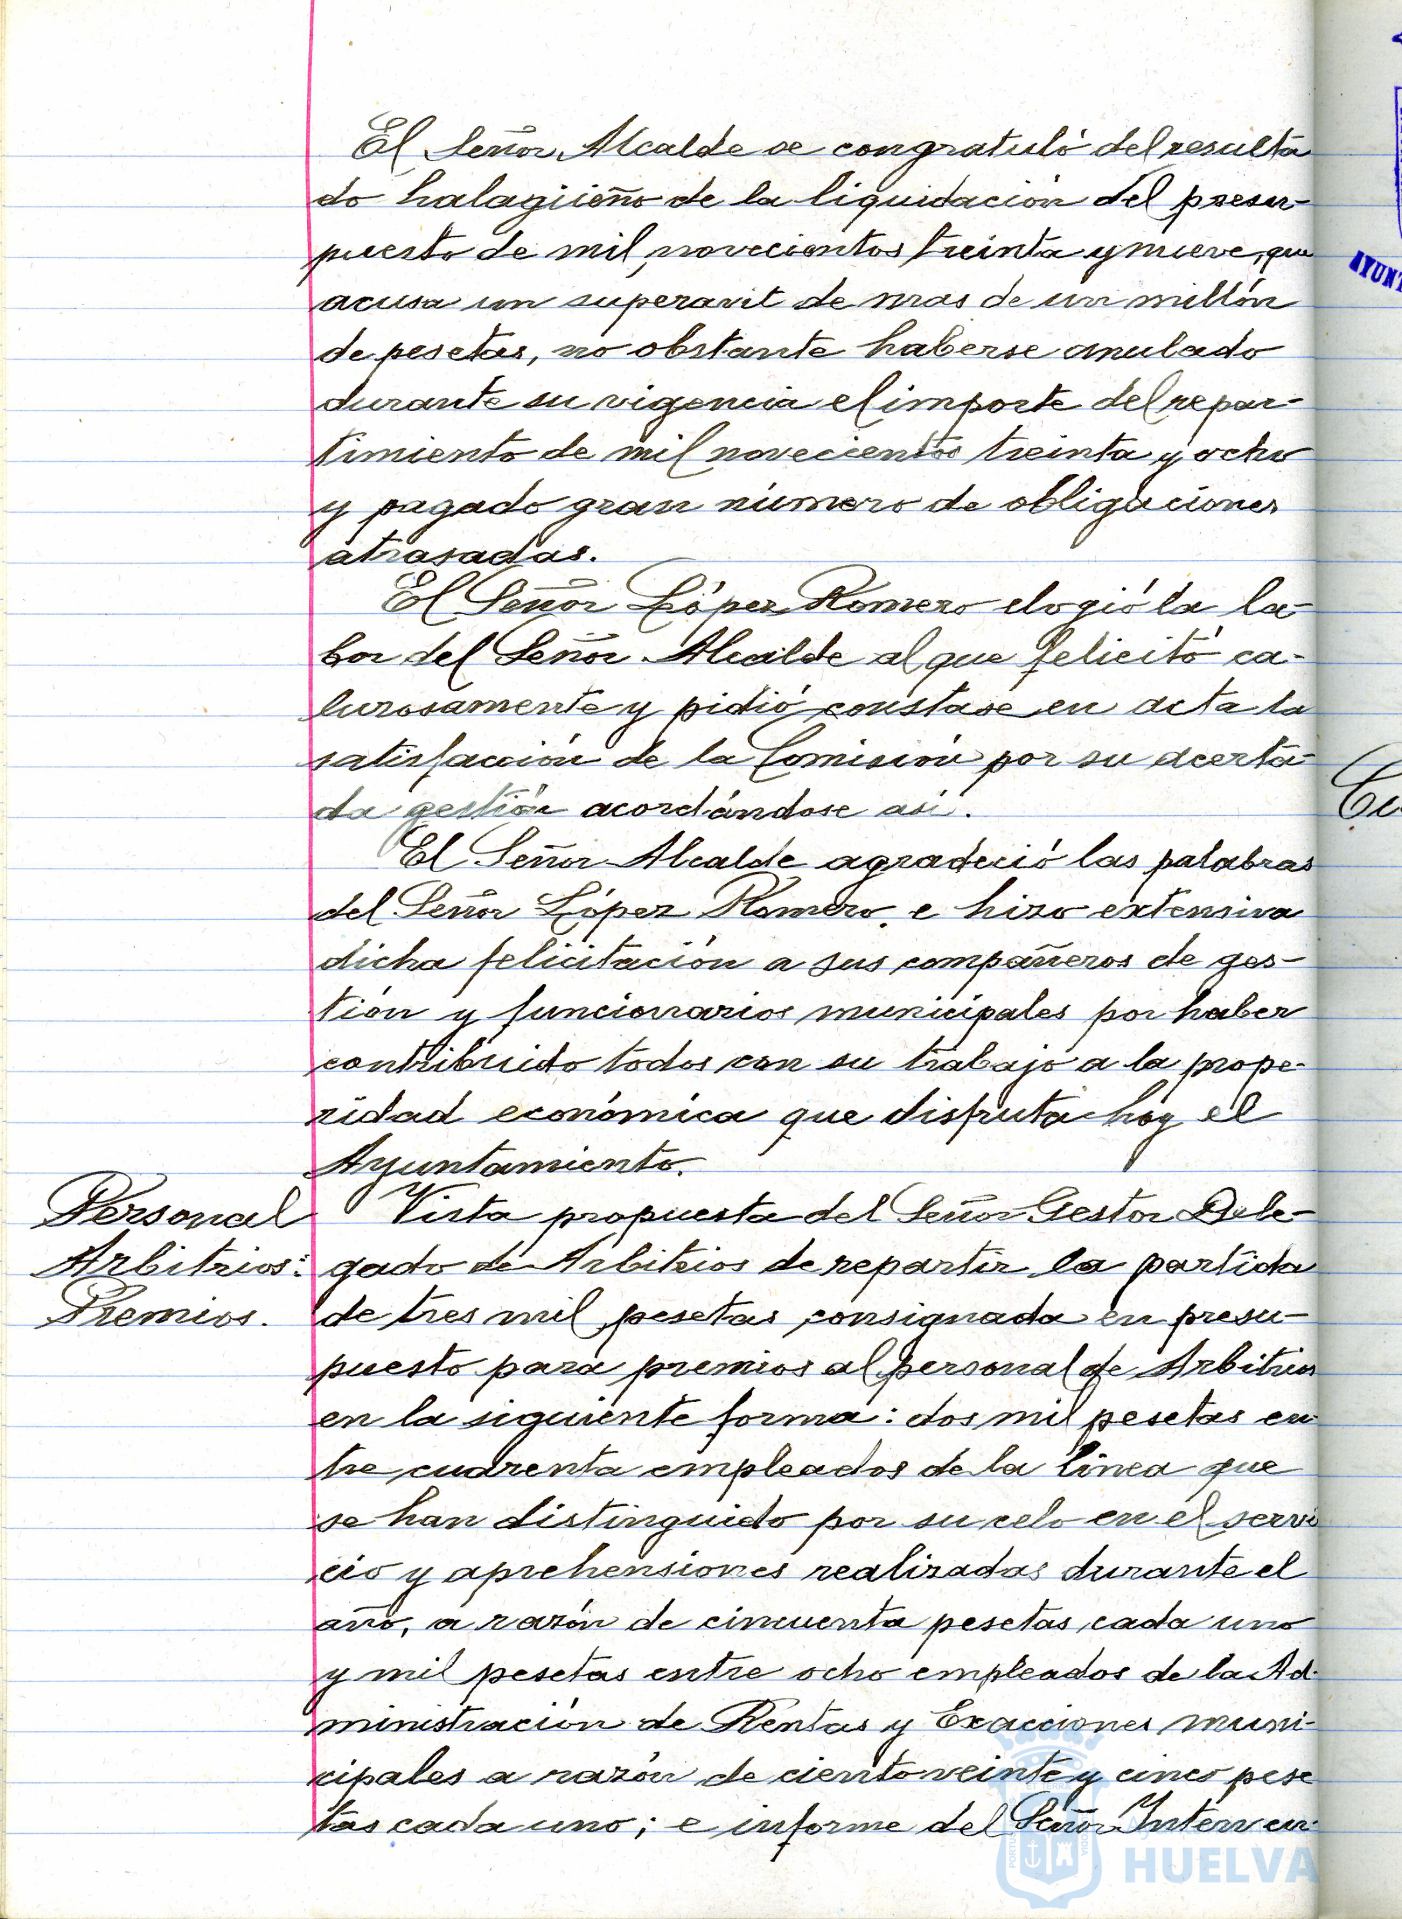 El Señor Alcalde se congratuló del resulta
do halagüeño de la liquidación del presu-
puesto de mil novecientos treinta y nueve, que
acusa un superavit de mas de un millón
de pesetas, no obstante haberse anulado
durante su vigencia el importe del repar-
timiento de mil novecientos treinta y ocho
y pagado gran número de obligaciones
atrasadas.
El Señor López Romero elogió la la-
bor del Señor Alcalde al que felicitó ca-
lurosamente y pidió constase en acta la
satisfacción de la Comisión por su acerta-
da gestión acordándose asi.
El Señor Alcalde agradeció las palabras
del Señor López Romero, e hizo extensiva
dicha felicitación a sus compañeros de ges-
tión y funcionarios municipales por haber
contribuido todos con su trabajo a la prope-
ridad económica que disfruta hoy el
Ayuntamiento.
Personal
Arbitrios:
Premios.
Vista propuesta del Señor Gestor Dele-
gado de Arbitrios de repartir la partida
de tres mil pesetas consignada en presu-
puesto para premios al personal de Arbitrios
en la siguiente forma: dos mil pesetas en-
tre cuarenta empleados de la línea que
se han distinguido por su celo en el servi
cio y aprehensiones realizadas durante el
año, a razón de cincuenta pesetas cada uno
y mil pesetas entre ocho empleados de la Ad-
ministración de Rentas y Exacciones muni-
cipales a razón de ciento veinte y cinco pese
tas cada uno; e informe del Señor Interven-
HUELVA